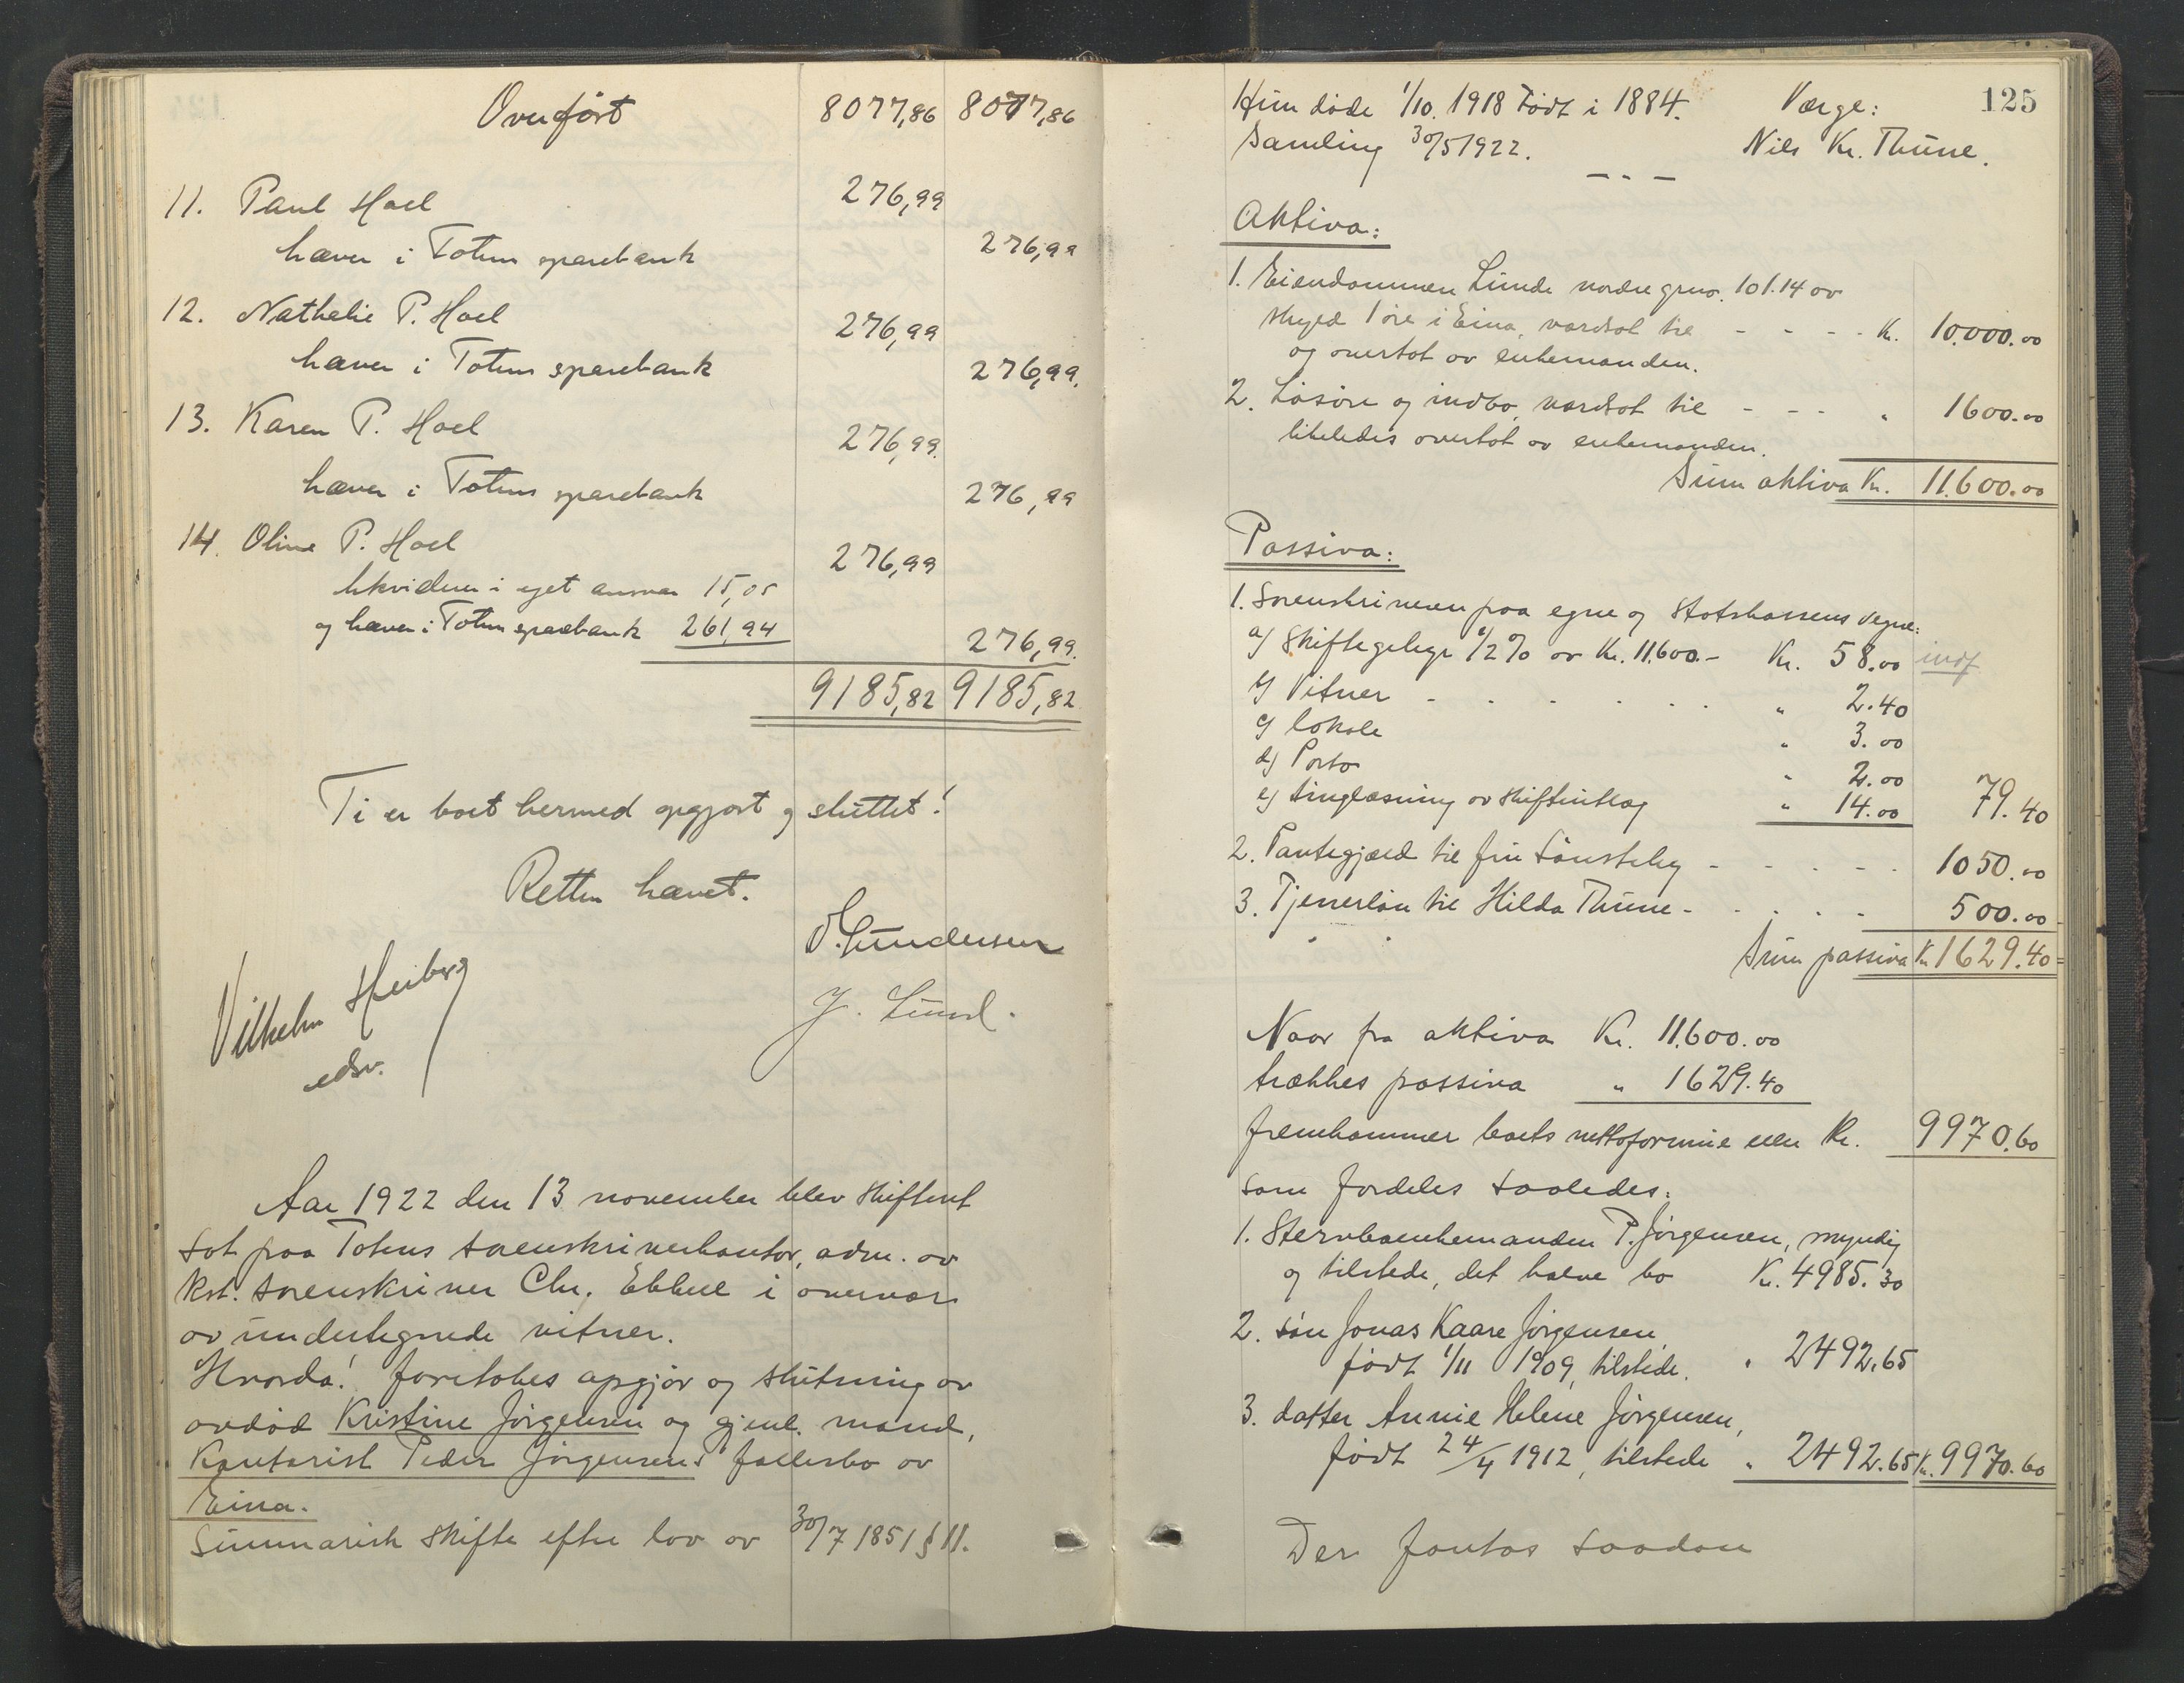 Overført 8077,86 8077,86
11. Paul Hoel 276,99
hæver i Totens sparebank 276,99
12. Nathelie P. Hoel 276,99
hæver i Totens sparebank 276,99.
13. Karen P. Hoel 276,99.
hæver i Totens sparebank 276,99
14. Oline P. Hoel 276,99
likviderer i eget ansvar 15,05
og hæver i Totens sparebank 261,94 276,99.
9185,82 9185,82
Ti er boet hermed opgjort og sluttet!
Retten hævet.
O. Gundersen
J. Lund.
Vilhelm Heiberg
edsv.
Aar 1922 den 13 november blev skifteret
sat paa Totens sorenskriverkontor, adm. av
kst. sorenskriver Chr. Ebbell i overvær
av undertegnede vitner.
Hvorda! foretokes opgjør og slutning av
avdød Kristine Jørgensen og gjenl. mand,
Kontorist Peder Jørgensens fællesbo av
Eina.
Summarisk skifte efter lov av 30/7 1851 § 11.
125
Hun døde 1/10. 1918 Født i 1884. Værge:
Samling 30/5 1922. Nils Kr. Thune.
Aktiva:
1. Eiendommen Lunde nordre grno. 101.14 av
skyld 1 øre i Eina, værdsat til - - - - Kr. 10.000.00
og overtat av enkemanden.
2. Løsøre og indbo, værdsat til - - - " 1600.00
likeledes overtat av enkemanden.
Sum aktiva Kr. 11.600.00
Passiva:
1. Sorenskriveren paa egne og Statskassens vegne:
a) Skiftegebyr 1/2 % av Kr. 11.600.- Kr. 58.00
b) Vitner - - - - - - " 2.40
c) lokale " 3.00
d) Porto " 2.00
e) tinglæsning av skifteutlæg " 14.00 79.40
2. Pantegjæld til fru Sønsteby - - - - - 1050.00
3. Tjenerløn til Hilda Thune - - - - - 500.00
Sum passiva Kr. 1629.40
Naar fra aktiva Kr. 11.600.00
trækkes passiva " 1629.40
fremkommer boets nettoformue eller Kr. 9970.60
som fordeles saaledes:
1. Stervboenkemanden P. Jørgensen, myndig
og tilstede, det halve bo Kr. 4985.30
2. søn Jonas Kaare Jørgensen,
født 1/11 1909, tilstede. " 2492.65
3. datter Annie Helene Jørgensen,
født 24/4 1912, tilstede " 2492.65 Kr. 9970.60
Der fantas saadan